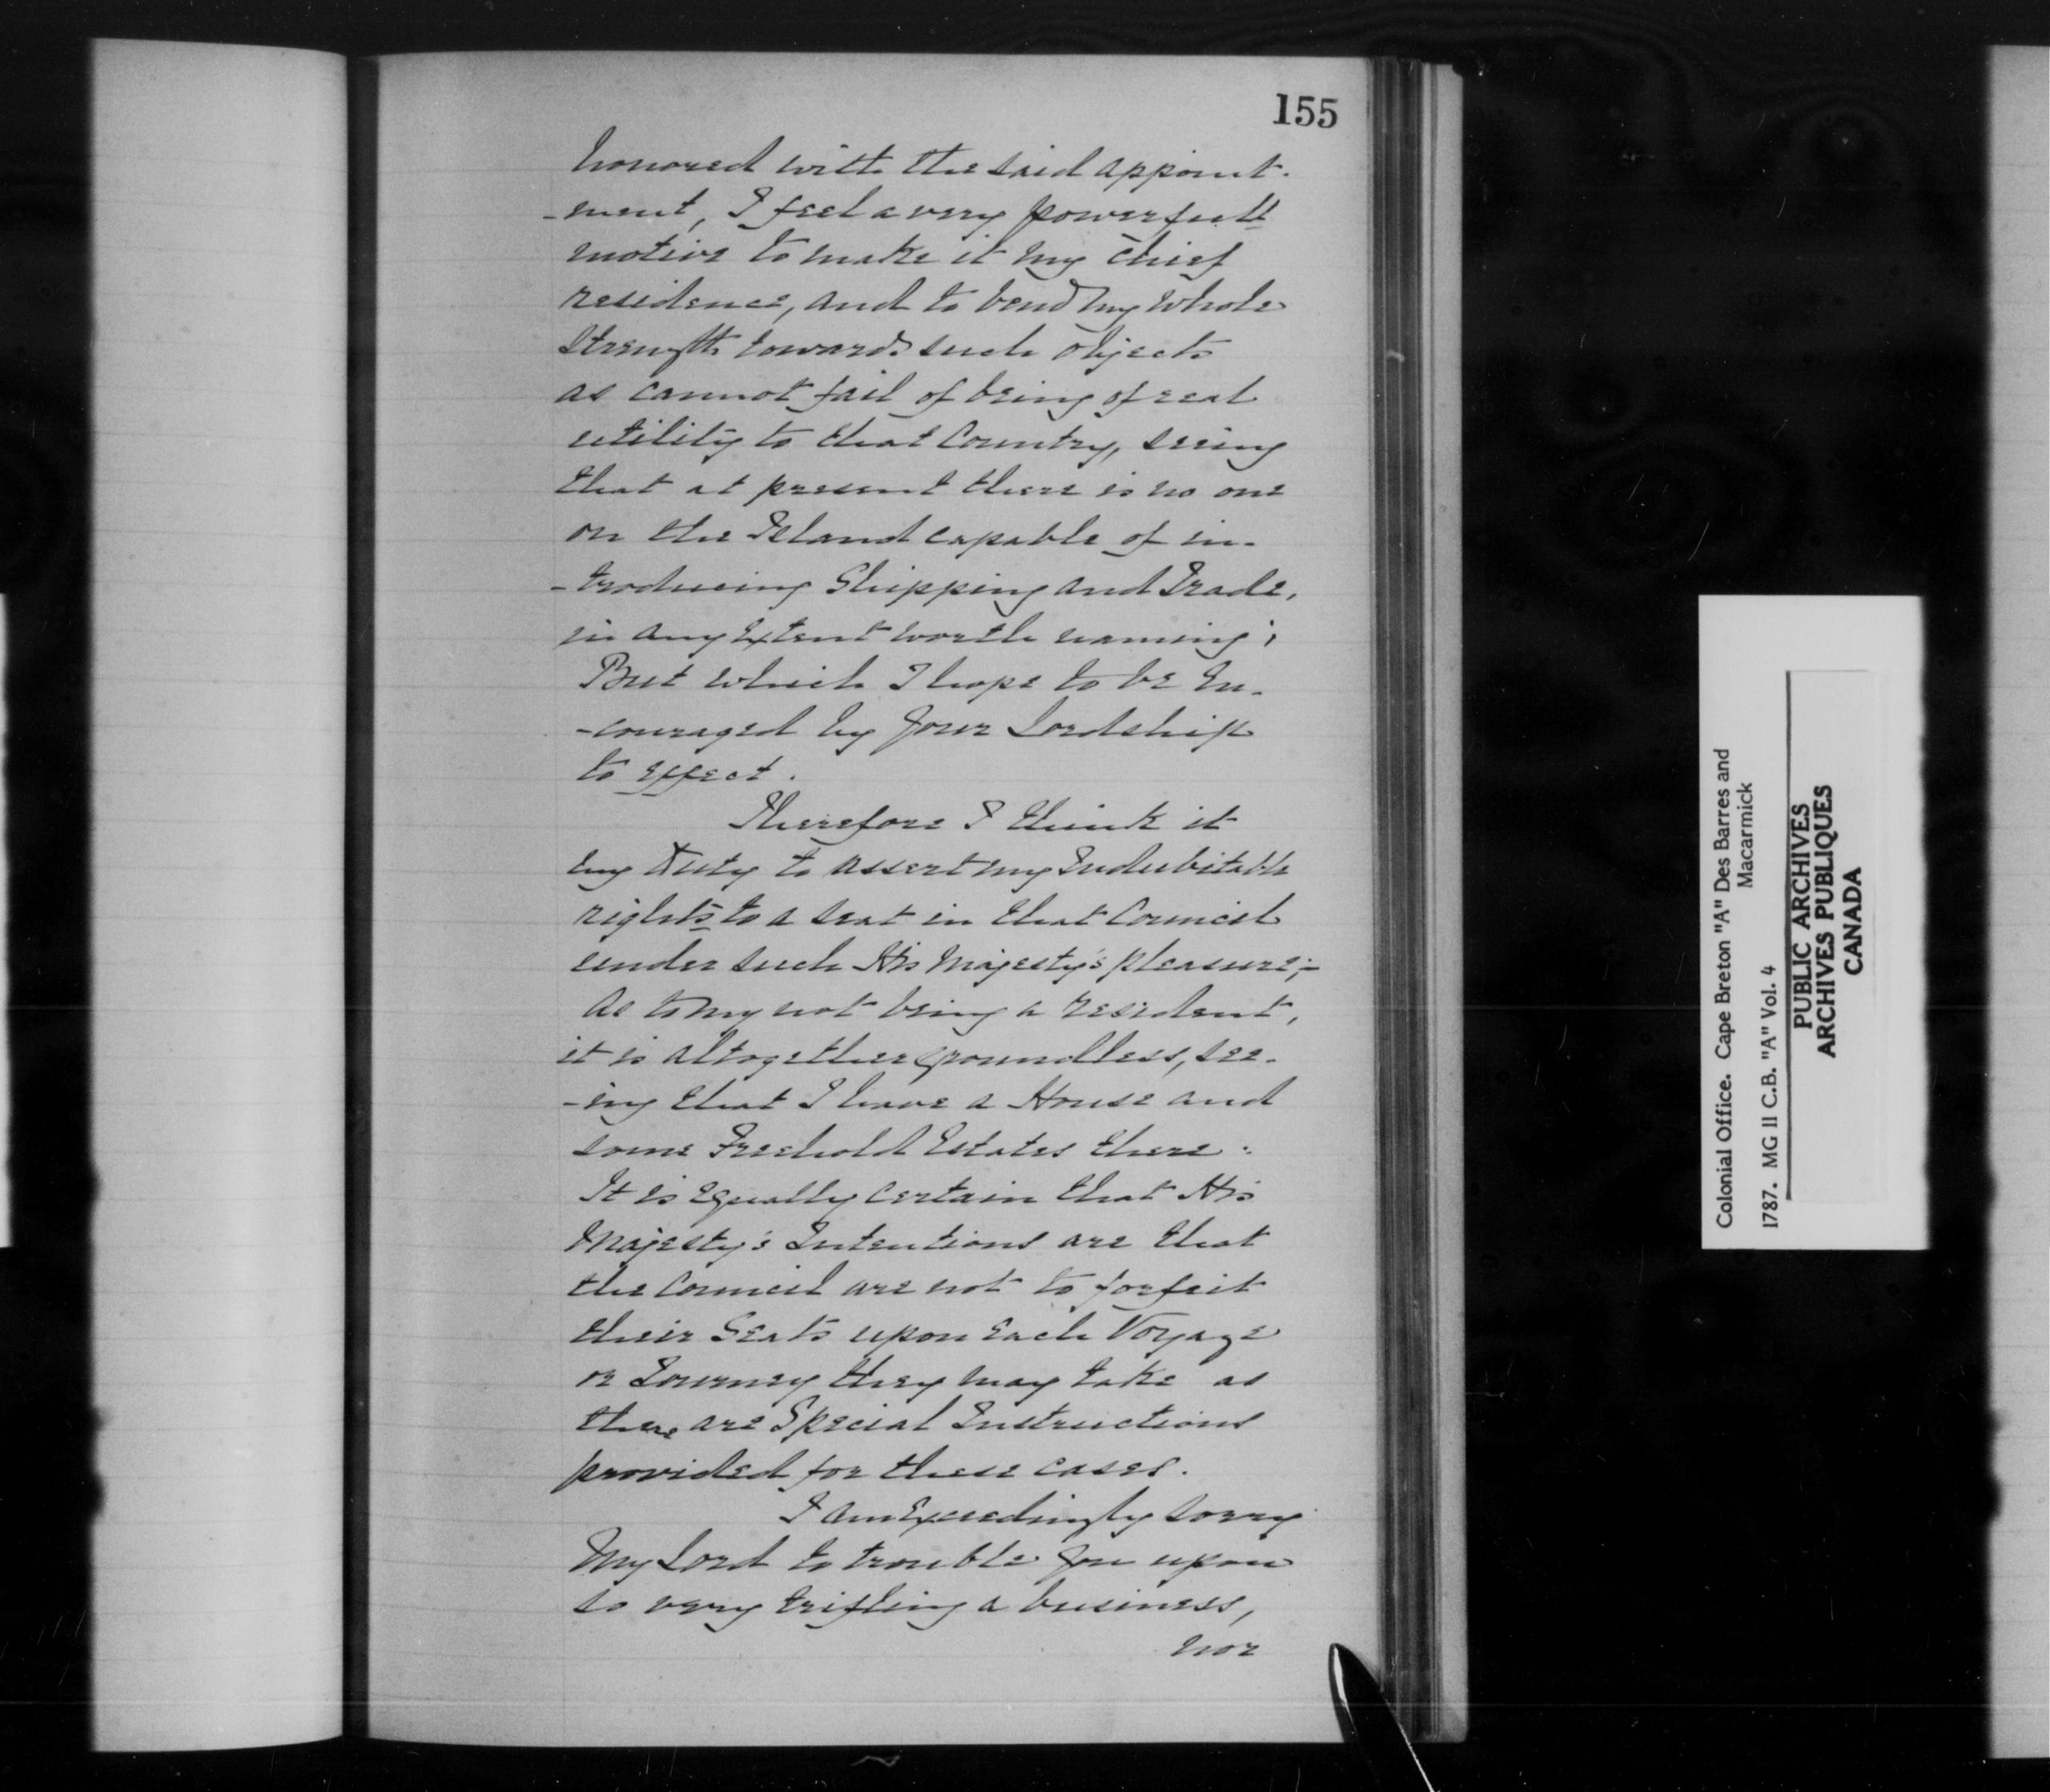 155
honored with the said appoint-
-ment, I feel a very powerfull
motive to make it my Chief
residence, and to bend my whole
strength towards such objects
as cannot fail of being of real
utility to that Country, seeing
that at present there is no one
on the Island capable of in-
-troducing Shipping and Trade,
in any Extent worth naming;
But which I hope to be En-
-couraged by Your Lordship
to Effect.
Therefore I think it
my Duty to assert my Indubitable
rights to a seat in that Council
under such His Majesty's pleasure;-
As to my not being a resident,
it is altogether groundless, see-
-ing that I have a House and
some Freehold Estates there:
It is Equally certain that His
Majesty's Intentions are that
the Council are not to forfeit
their Seats upon Each Voyage
or Journey they may take as
there are Special Instructions
provided for these cases.
I am Exceedingly sorry
My Lord to trouble You upon
so very trifling a business,
nor
Colonial Office. Cape Breton "A" Des Barres and
Macarmick
1787. MG 11 C.B. "A" Vol. 4
PUBLIC ARCHIVES
ARCHIVES PUBLIQUES
CANADA